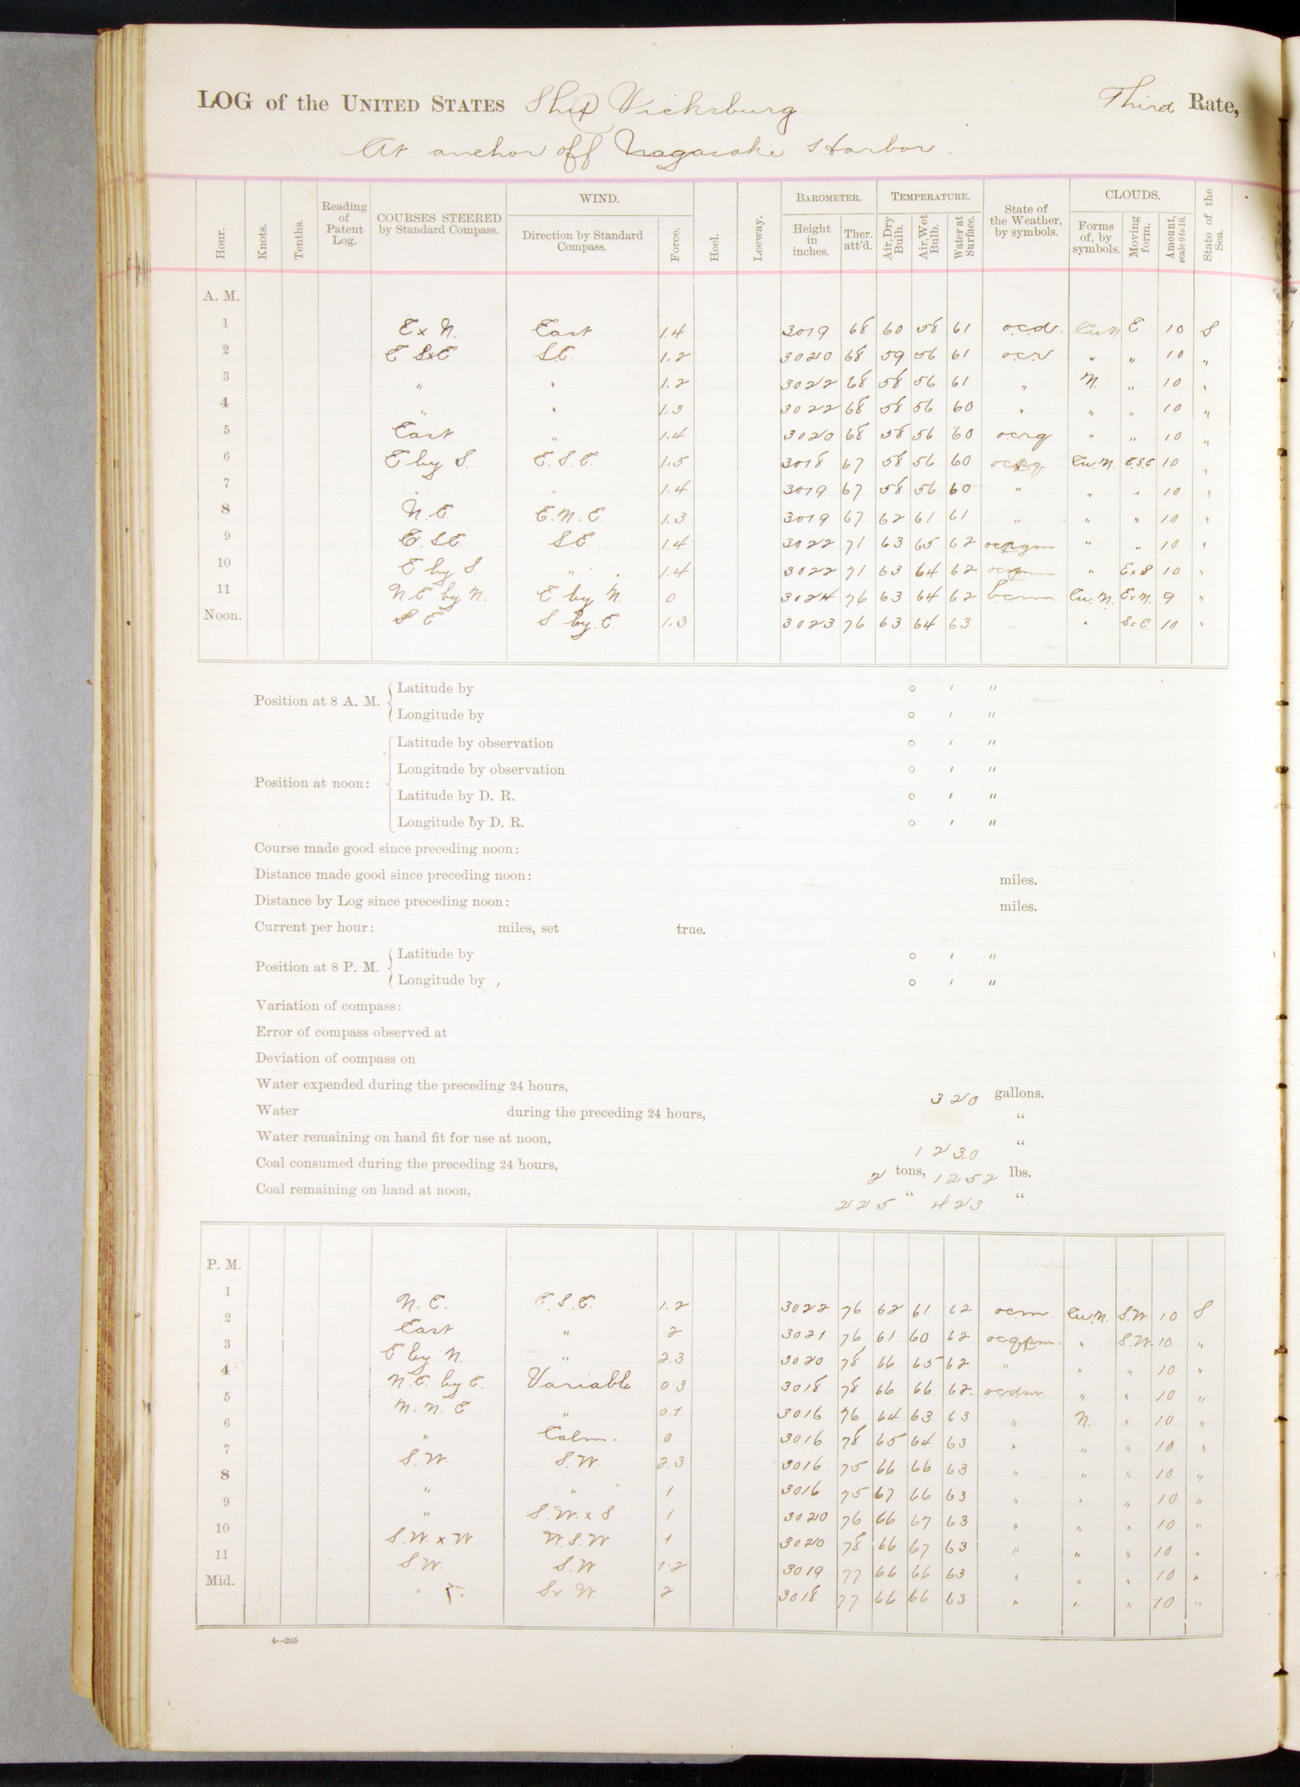 LOG of the UNITED STATES Ship Vicksburg. Third Rate,
At anchor off Nagasaki Harbor.
Hour. Knots. Tenths. Reading of Patent Log. COURSES STEERED by Standard Compass. WIND. Direction by Standard Compass. Force. Heel. Leeway. BAROMETER. Height in inches. Ther. att'd. TEMPERATURE. Air, Dry Bulb. Air, Wet Bulb. Water at Surface. State of the Weather, by symbols. CLOUDS. Forms of, by symbols. Moving form. Amount, scale 0 to 10. State of the Sea.
A. M.
1 ExN. East 1.4 3019 68 60 58 61 ocd. Cu.N E 10 S
2 E SxE S.E. 1.2 3020 68 59 56 61 ocr " " 10 "
3 " " 1.2 3022 68 58 56 61 " N. " 10 "
4 " " 1.3 3022 68 58 56 60 " " " 10 "
5 East " 1.4 3020 68 58 56 60 ocrg " " 10 "
6 E by S. E.S.E. 1.5 3018 67 58 56 60 Cu.N. E.S.E 10 "
7 " " 1.4 3019 67 58 56 60 " " " 10 "
8 N.E. E.N.E. 1.3 3019 67 62 61 61 " " " 10 "
9 E.SE SE. 1.4 3022 71 63 65 62 " " 10 "
10 E by S " 1.4 3022 71 63 64 62 " ExS 10 "
11 NE by N. E by N. 0 3024 76 63 64 62 bcm Cu.N. ExN. 9 "
Noon. SE S by.E. 1.3 3023 76 63 64 63 " " SxE. 10 "
Position at 8 A. M. Latitude by ° ′ ″
Longitude by ° ′ ″
Position at noon: Latitude by observation ° ′ ″
Longitude by observation ° ′ ″
Latitude by D. R. ° ′ ″
Longitude by D. R. ° ′ ″
Course made good since preceding noon:
Distance made good since preceding noon: miles.
Distance by Log since preceding noon: miles.
Current per hour: miles, set true.
Position at 8 P. M. Latitude by ° ′ ″
Longitude by ° ′ ″
Variation of compass:
Error of compass observed at
Deviation of compass on
Water expended during the preceding 24 hours, 320 gallons.
Water during the preceding 24 hours, "
Water remaining on hand fit for use at noon, 1230 "
Coal consumed during the preceding 24 hours, 2 tons, 1252 lbs.
Coal remaining on hand at noon, 225 " 423 "
P. M.
1 N.E. E.S.E. 1.2 3022 76 62 61 62 ocm Cu.N. S.W. 10 S
2 East " 2 3021 76 61 60 62 " S.W. 10 "
3 E by N. " 2.3 3020 78 66 65 62 " " " 10 "
4 N.E. by E. Variable 0.3 3018 78 66 66 62. ocdm " " 10 "
5 N.N.E " 0.1 3016 76 64 63 63 " N. " 10 "
6 " Calm. 0 3016 78 65 64 63 " " " 10 "
7 S.W. S.W. 2.3 3016 75 66 66 63 " " " 10 "
8 " " 1 3016 75 67 66 63 " " " 10 "
9 " S.W.xS 1 3020 76 66 67 63 " " " 10 "
10 S.W.xW W.S.W 1 3020 78 66 67 63 " " " 10 "
11 S.W. S.W. 1.2 3019 77 66 66 63 " " " 10 "
Mid. " SxW. 2. 3018 77 66 66 63 " " " 10 "
4—265